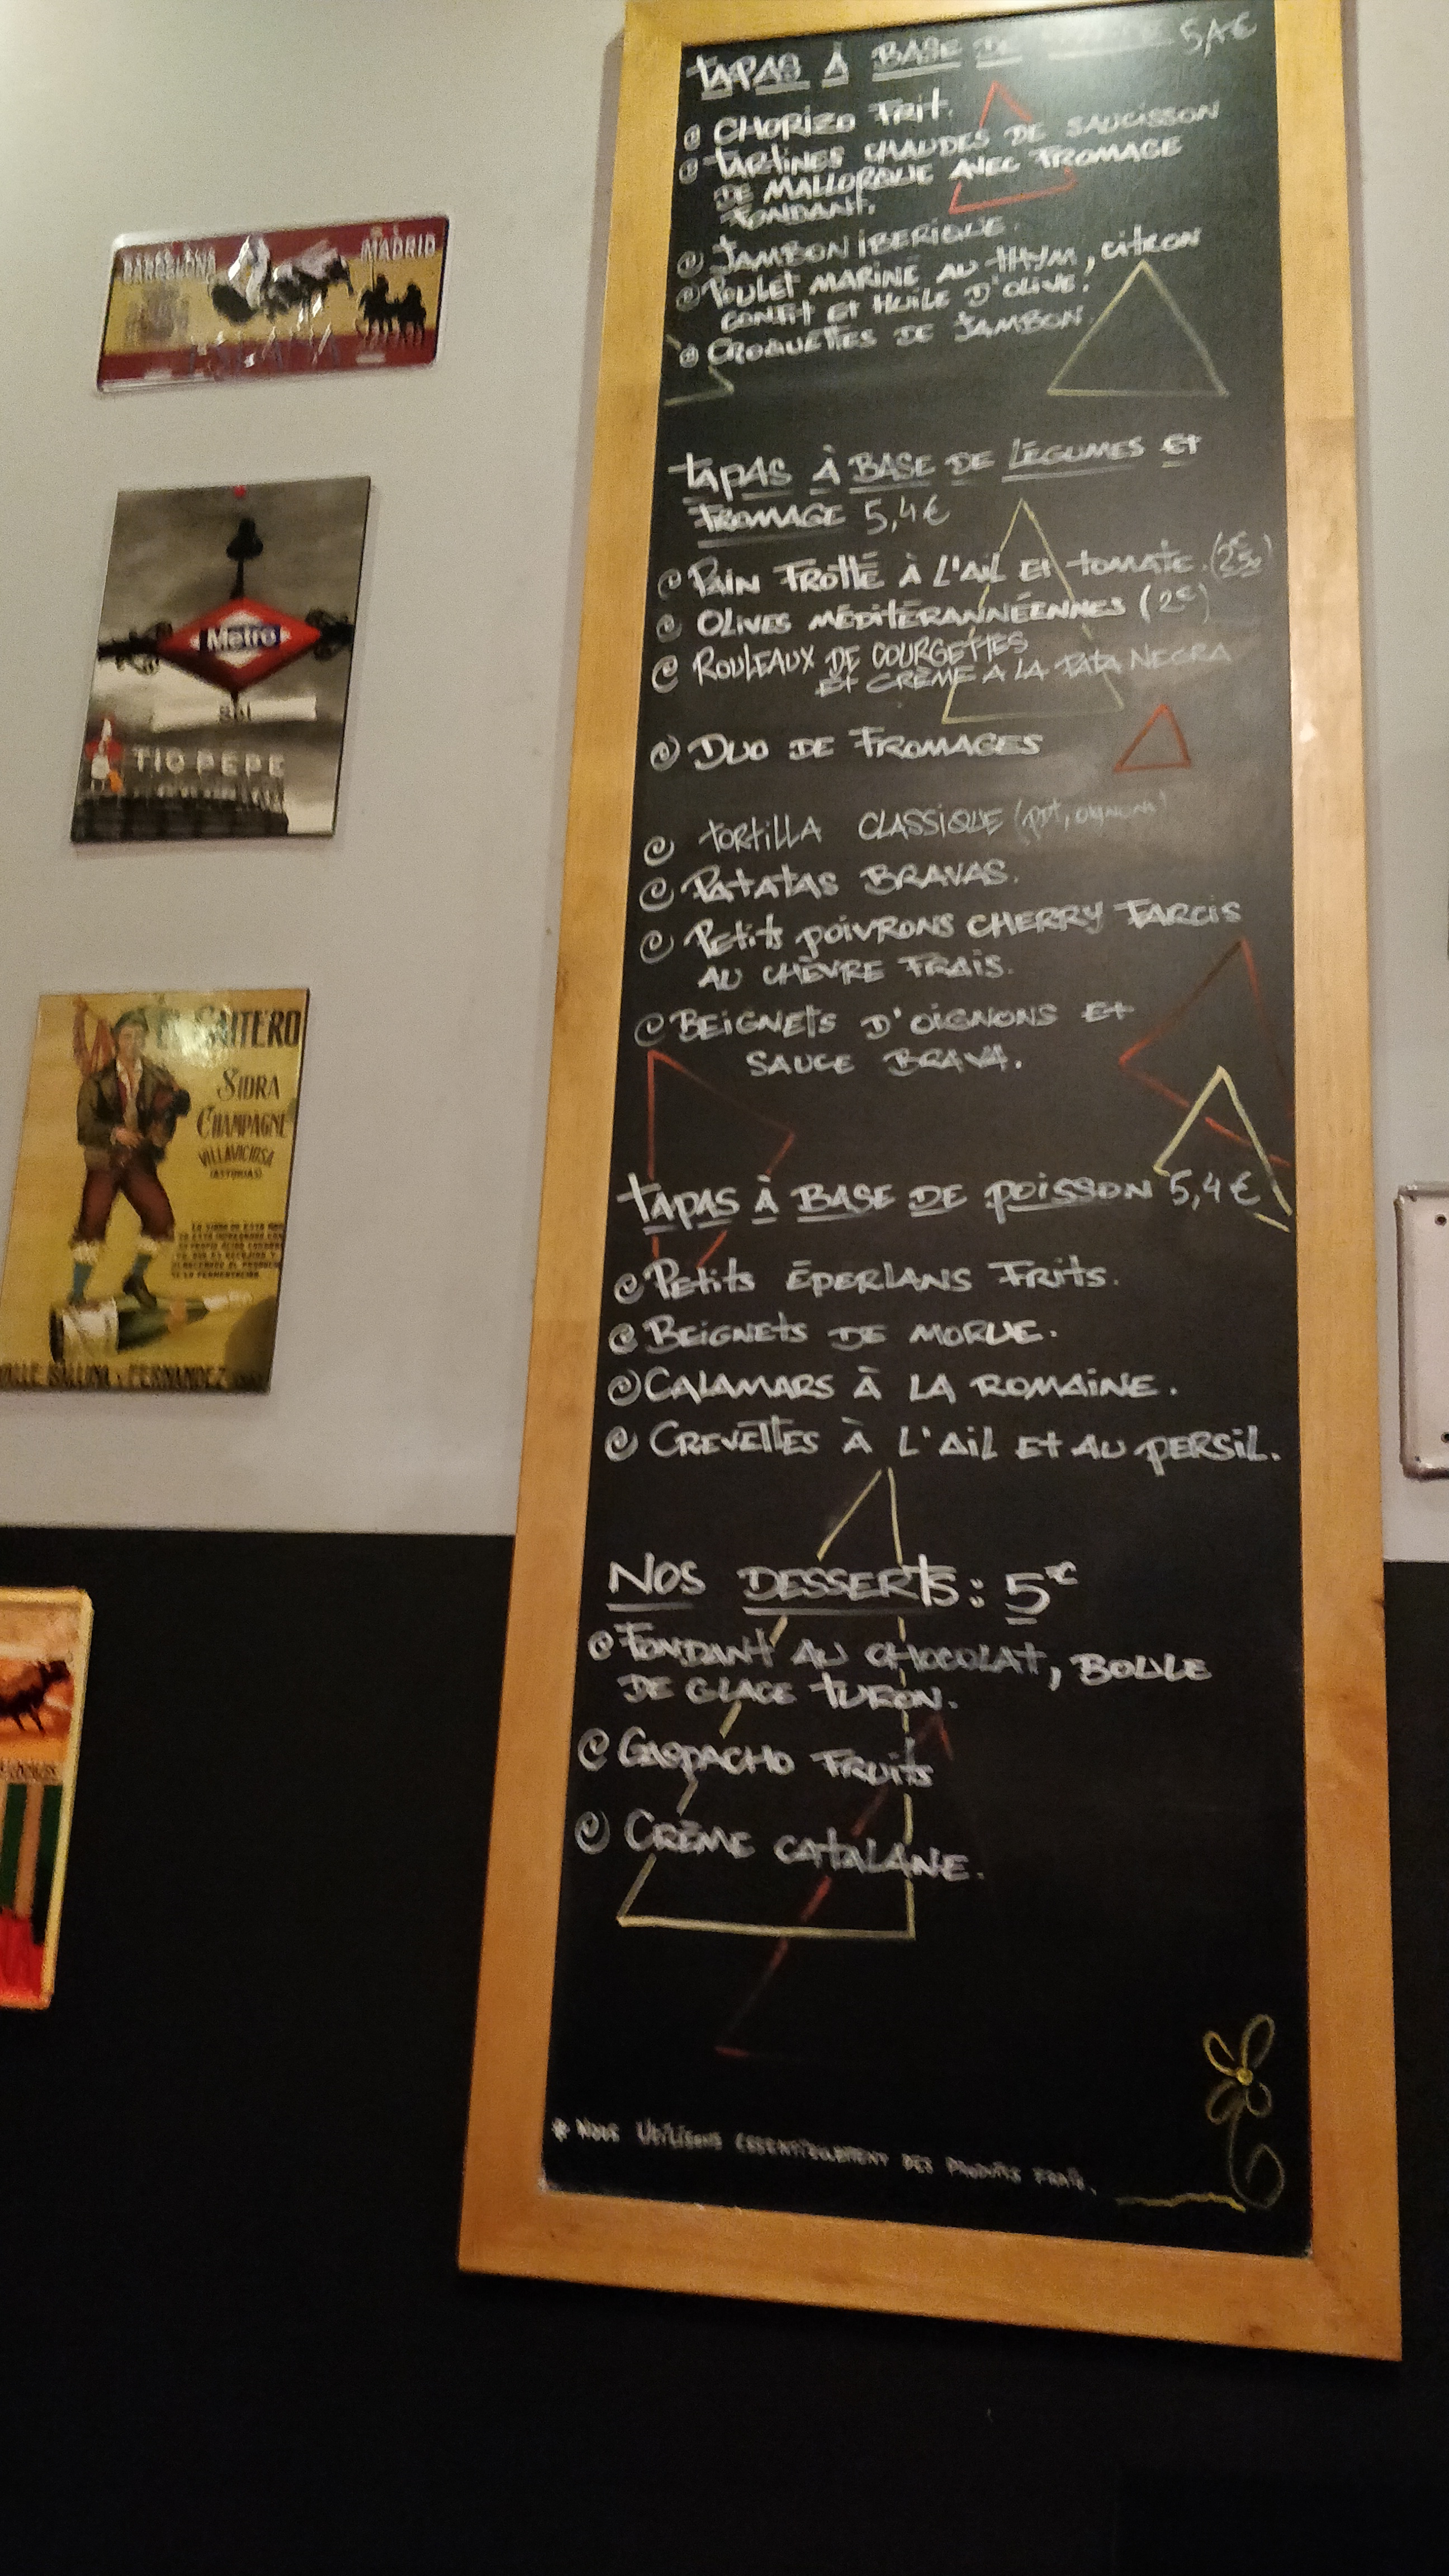 TAPAS À BASE DE
CHORIZO FRIT.
TARTINES CHAUDES DE SAUCISSON
DE MALLORQUE AVEC FROMAGE
FONDANT.
JAMBON IBERIQUE.
POULET MARINÉ AU THYM, CITRON
CONFIT ET HUILE D'OLIVE.
CROQUETTES DE JAMBON.
TAPAS À BASE DE LÉGUMES ET
FROMAGE 5,4€
PAIN FROTTÉ À L'AIL ET TOMATE.
OLIVES MÉDITÉRANNÉENNES (2€)
ROULEAUX DE COURGETTES
ET CRÈME A LA PATA NEGRA
DUO DE FROMAGES
TORTILLA CLASSIQUE (PDT, OIGNONS)
PATATAS BRAVAS.
PETITS POIVRONS CHERRY FARCIS
AU CHÈVRE FRAIS.
BEIGNETS D'OIGNONS ET
SAUCE BRAVA.
TAPAS À BASE DE POISSON 5,4€
PETITS ÉPERLANS FRITS.
BEIGNETS DE MORUE.
CALAMARS À LA ROMAINE.
CREVETTES À L'AIL ET AU PERSIL.
NOS DESSERTS: 5€
FONDANT AU CHOCOLAT, BOULE
DE GLACE TURON.
GASPACHO FRUITS
CRÈME CATALANE.
* NOUS UTILISONS ESSENTIELLEMENT DES PRODUITS FRAIS.
BARCELONA
MADRID
ESPAÑA
Metro
Sol
TIO PEPE
EL GAITERO
SIDRA
CHAMPAGNE
VILLAVICIOSA
(ASTURIAS)
VALLE, BALLINA Y FERNANDEZ